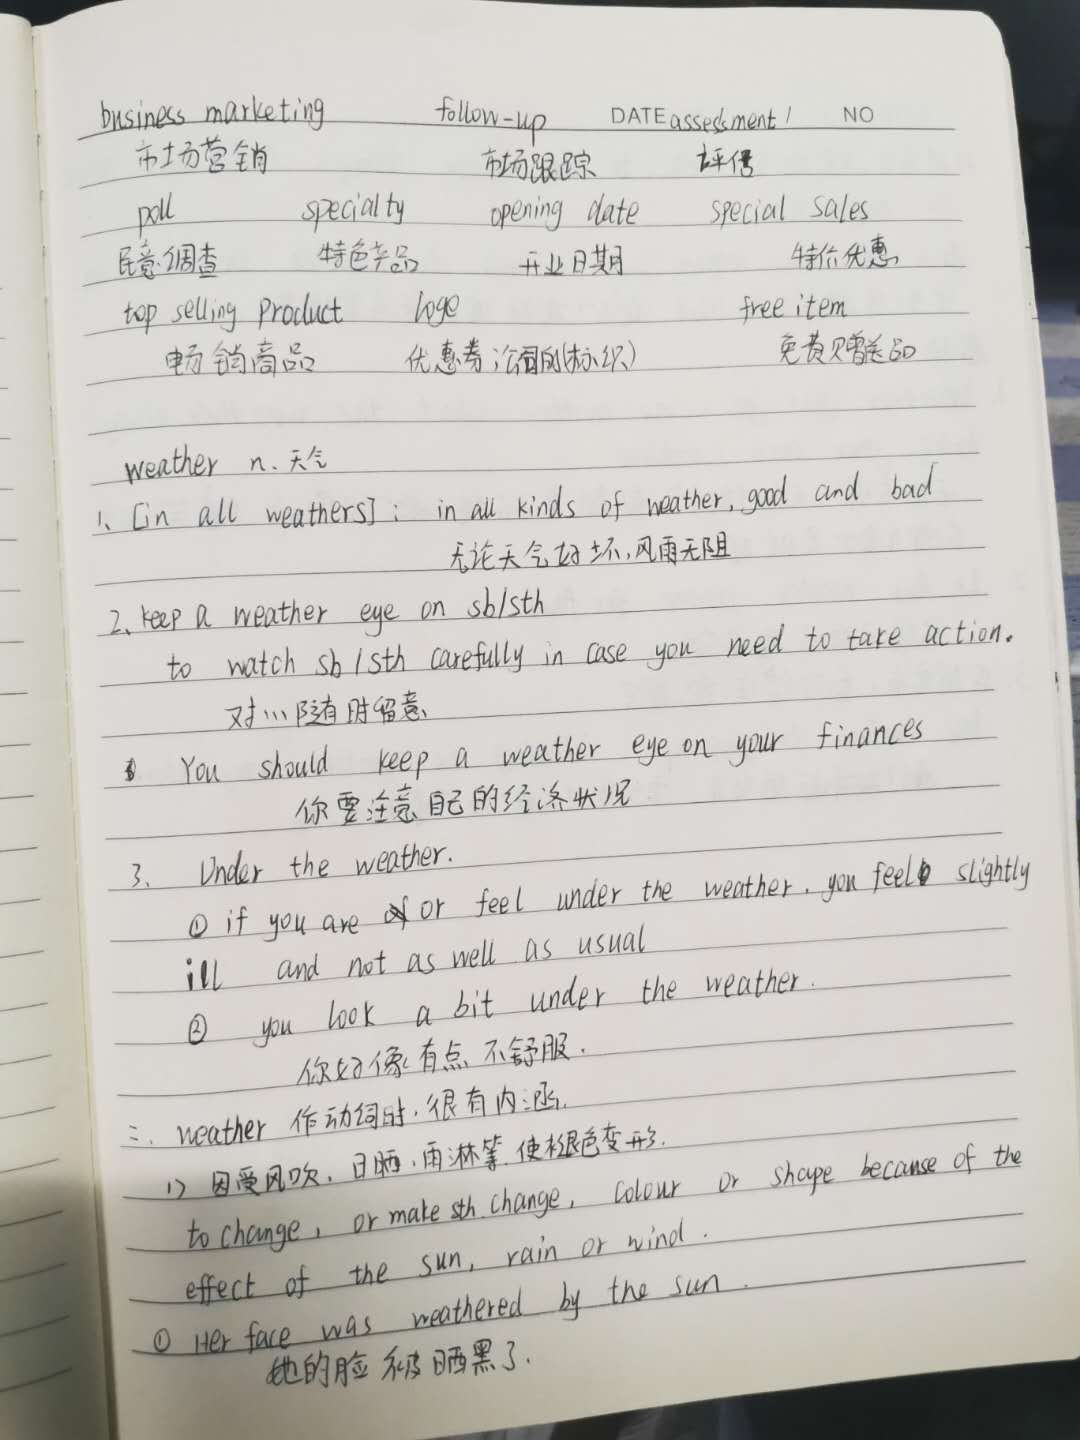 business marketing follow-up DATE assessment / NO
市场营销 市场跟踪 评估
poll specialty opening date special sales
民意调查 特色产品 开业日期 特价优惠
top selling product loge free item
畅销商品 优惠券 公司的(标识) 免费赠送品
weather n. 天气
1、[in all weathers]: in all kinds of weather, good and bad
无论天气好坏,风雨无阻
2、keep a weather eye on sb/sth
to watch sb/sth carefully in case you need to take action.
对...随时留意
You should keep a weather eye on your finances
你要注意自己的经济状况
3、Under the weather.
① if you are or feel under the weather, you feel slightly
ill and not as well as usual
② you look a bit under the weather.
你好像有点不舒服.
二. weather 作动词时,很有内涵.
1) 因受风吹、日晒、雨淋等 使褪色变形.
to change, or make sth. change, colour or shape because of the
effect of the sun, rain or wind.
① Her face was weathered by the sun.
她的脸被晒黑了.